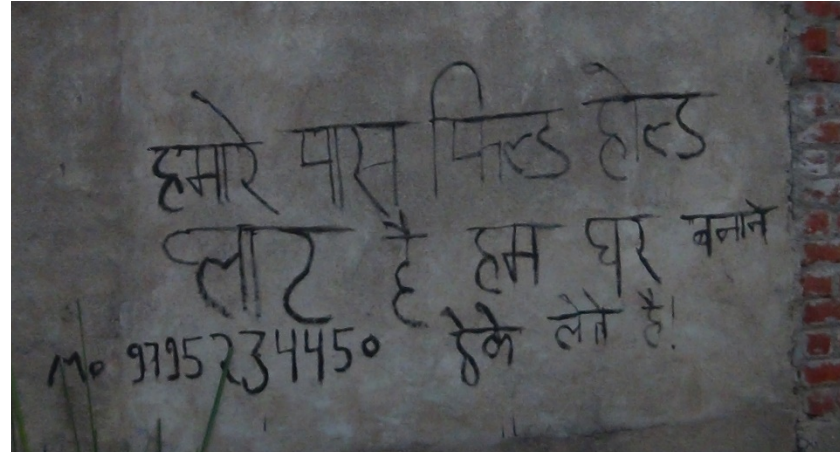 हमारे पास फिल्ड होल्ड
प्लाट है हम घर बनाने
Mo 9795234450 ठेके लेते है!